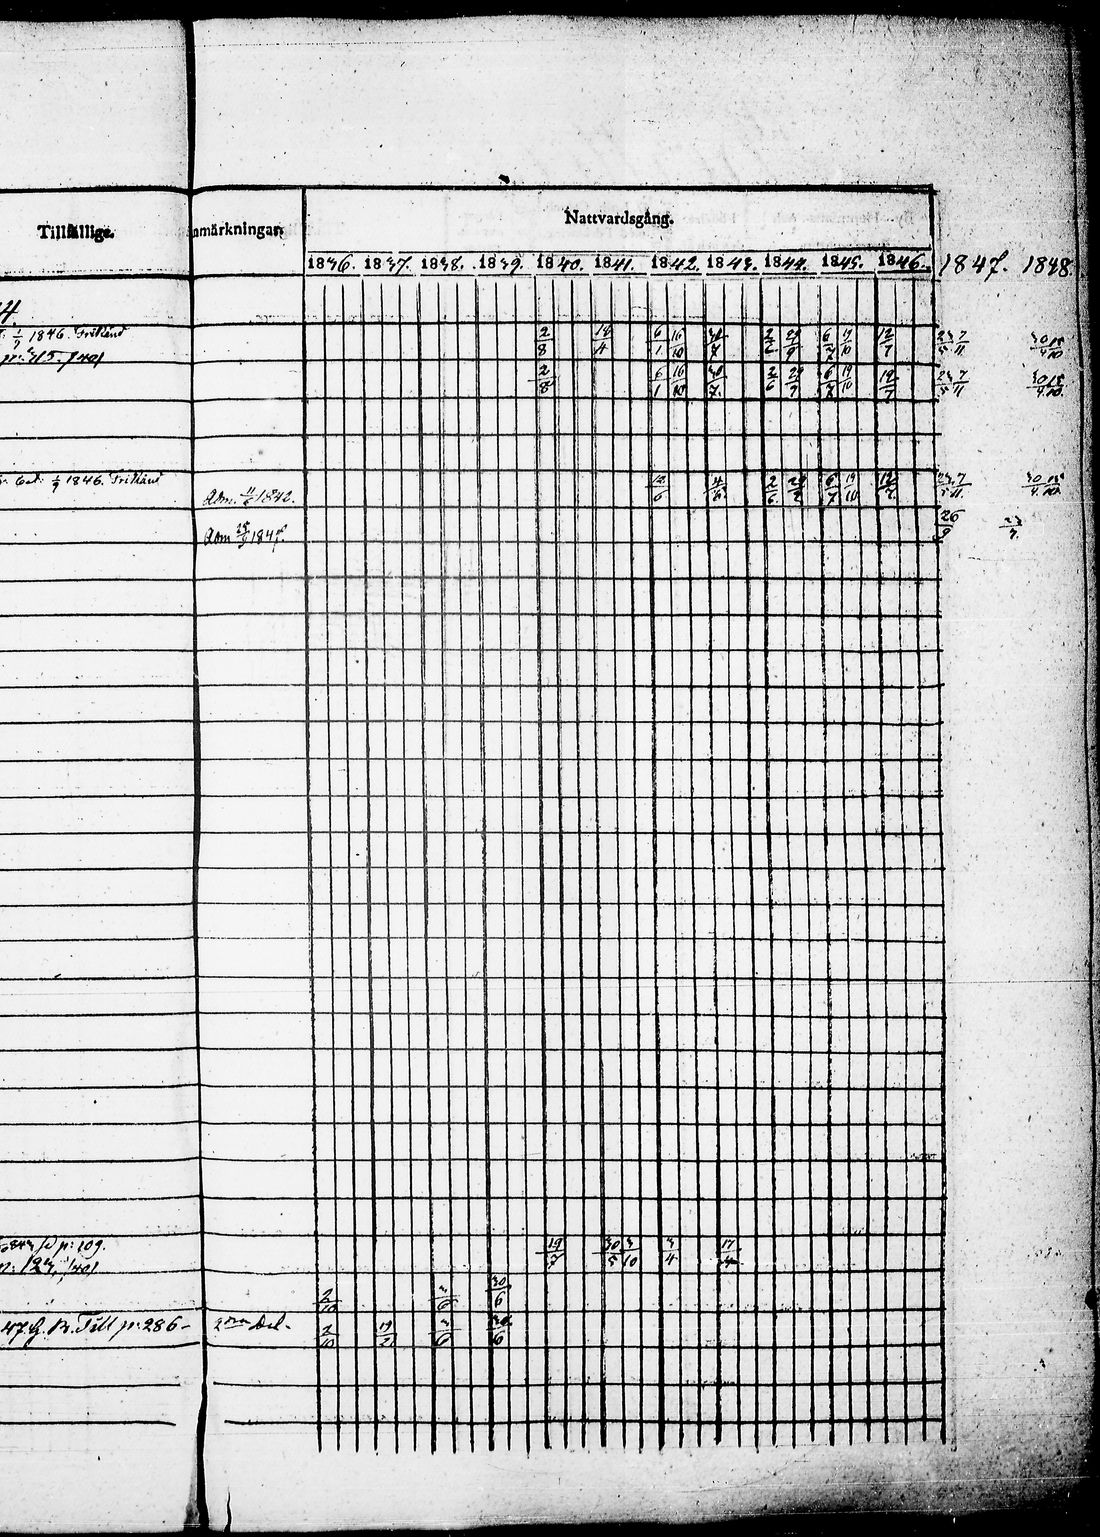 Tillfällige. nmärkningar. Nattvardsgång.
1836. 1837. 1838. 1839. 1840. 1841. 1842. 1843. 1844. 1845. 1846. 1847. 1848.
1/9 1846. Frikänd 2/8 18/4 6/1 16/10 30/7 2/6 29/9 6/7 19/10 12/7 23/5 7/11
2/8 6/1 16/10 30/7 2/6 29/9 6/7 19/10 12/7 23/5 7/11
1/9 1846. Frikänd Adm. 11/6 1842. 12/6 4/6 2/6 29/9 6/7 19/10 12/7 23/5 7/11
Adm 1847. 26/9
p: 109. 19/7 30/5 3/10 3/4 17/4
p: 123,
2/10 3/6 30/6
47 B. Till p: 286 - 2dra Del. 2/10 19/2 3/6 30/6